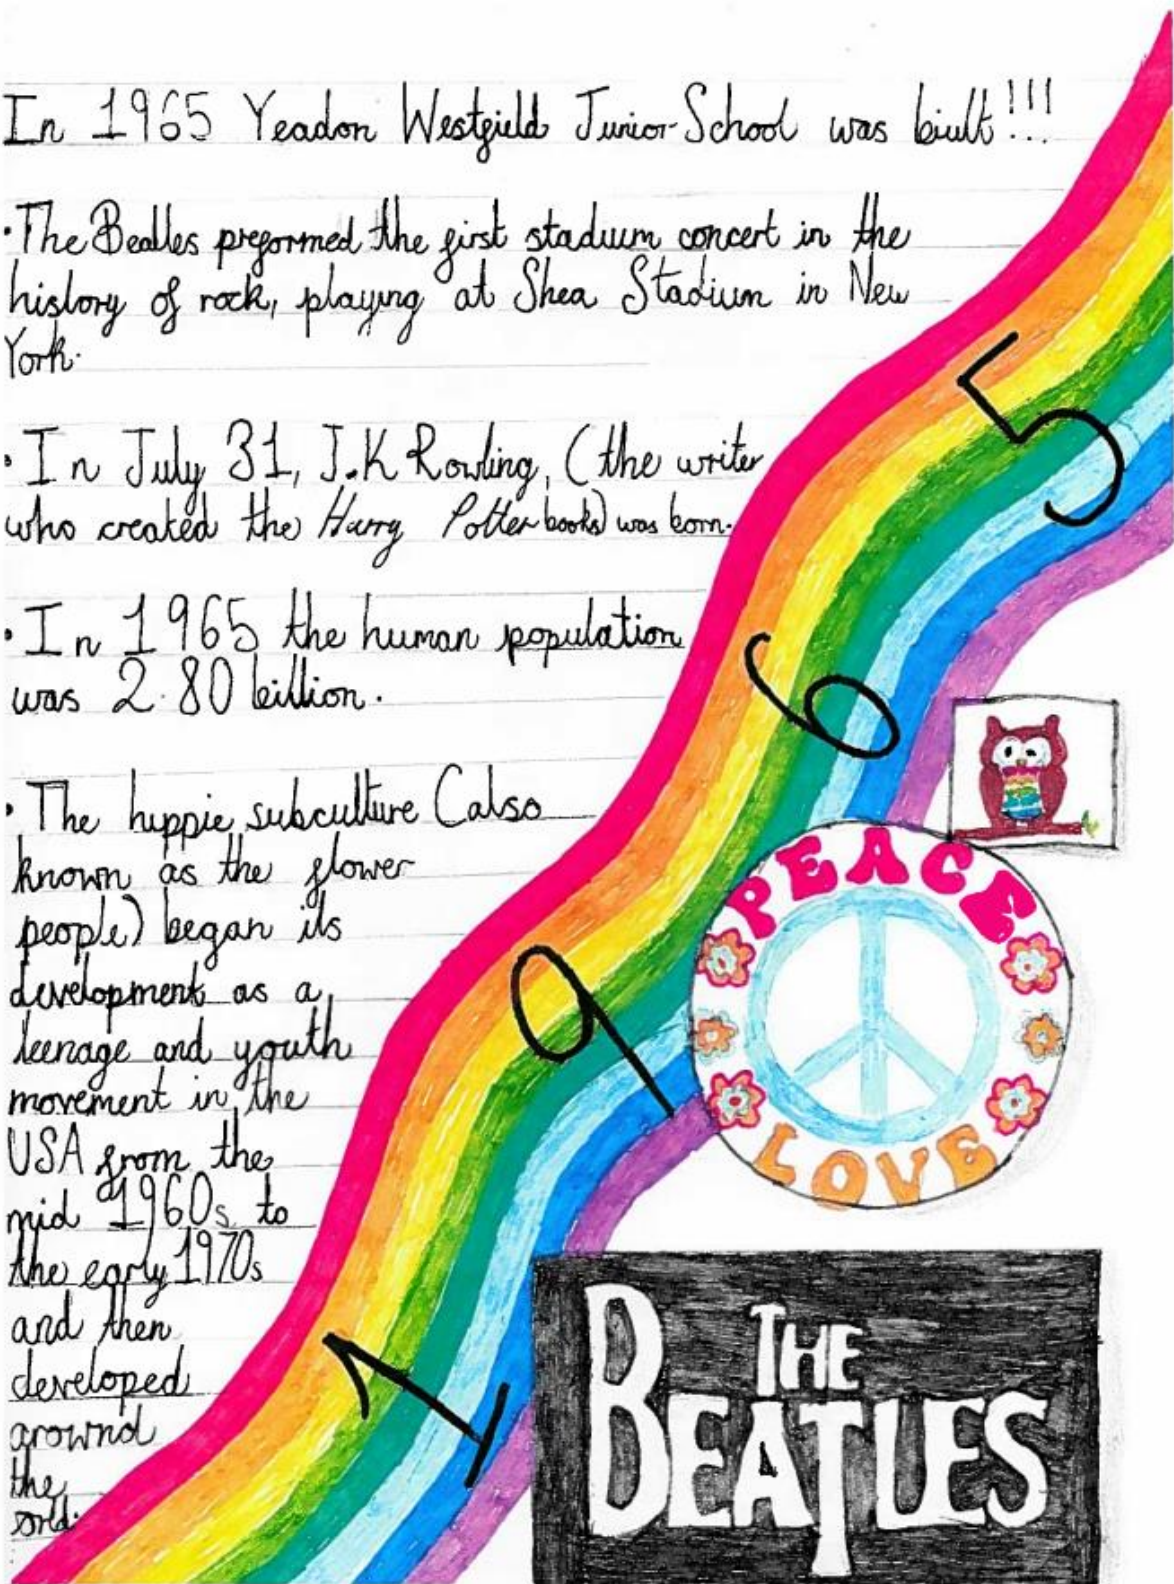 In 1965 Yeadon Westfield Junior School was biult!!!
• The Beatles preformed the first stadium concert in the
history of rock, playing at Shea Stadium in New
York.
• In July 31, J.K Rowling, (the writer
who created the Harry Potter books) was born.
• In 1965 the human population
was 2.80 billion.
• The hippie subculture (also
known as the flower
people) began its
development as a
teenage and youth
movement in the
USA from the
mid 1960s to
the early 1970s
and then
developed
arownd
the
world.
1965
PEACE
LOVE
THE
BEATLES